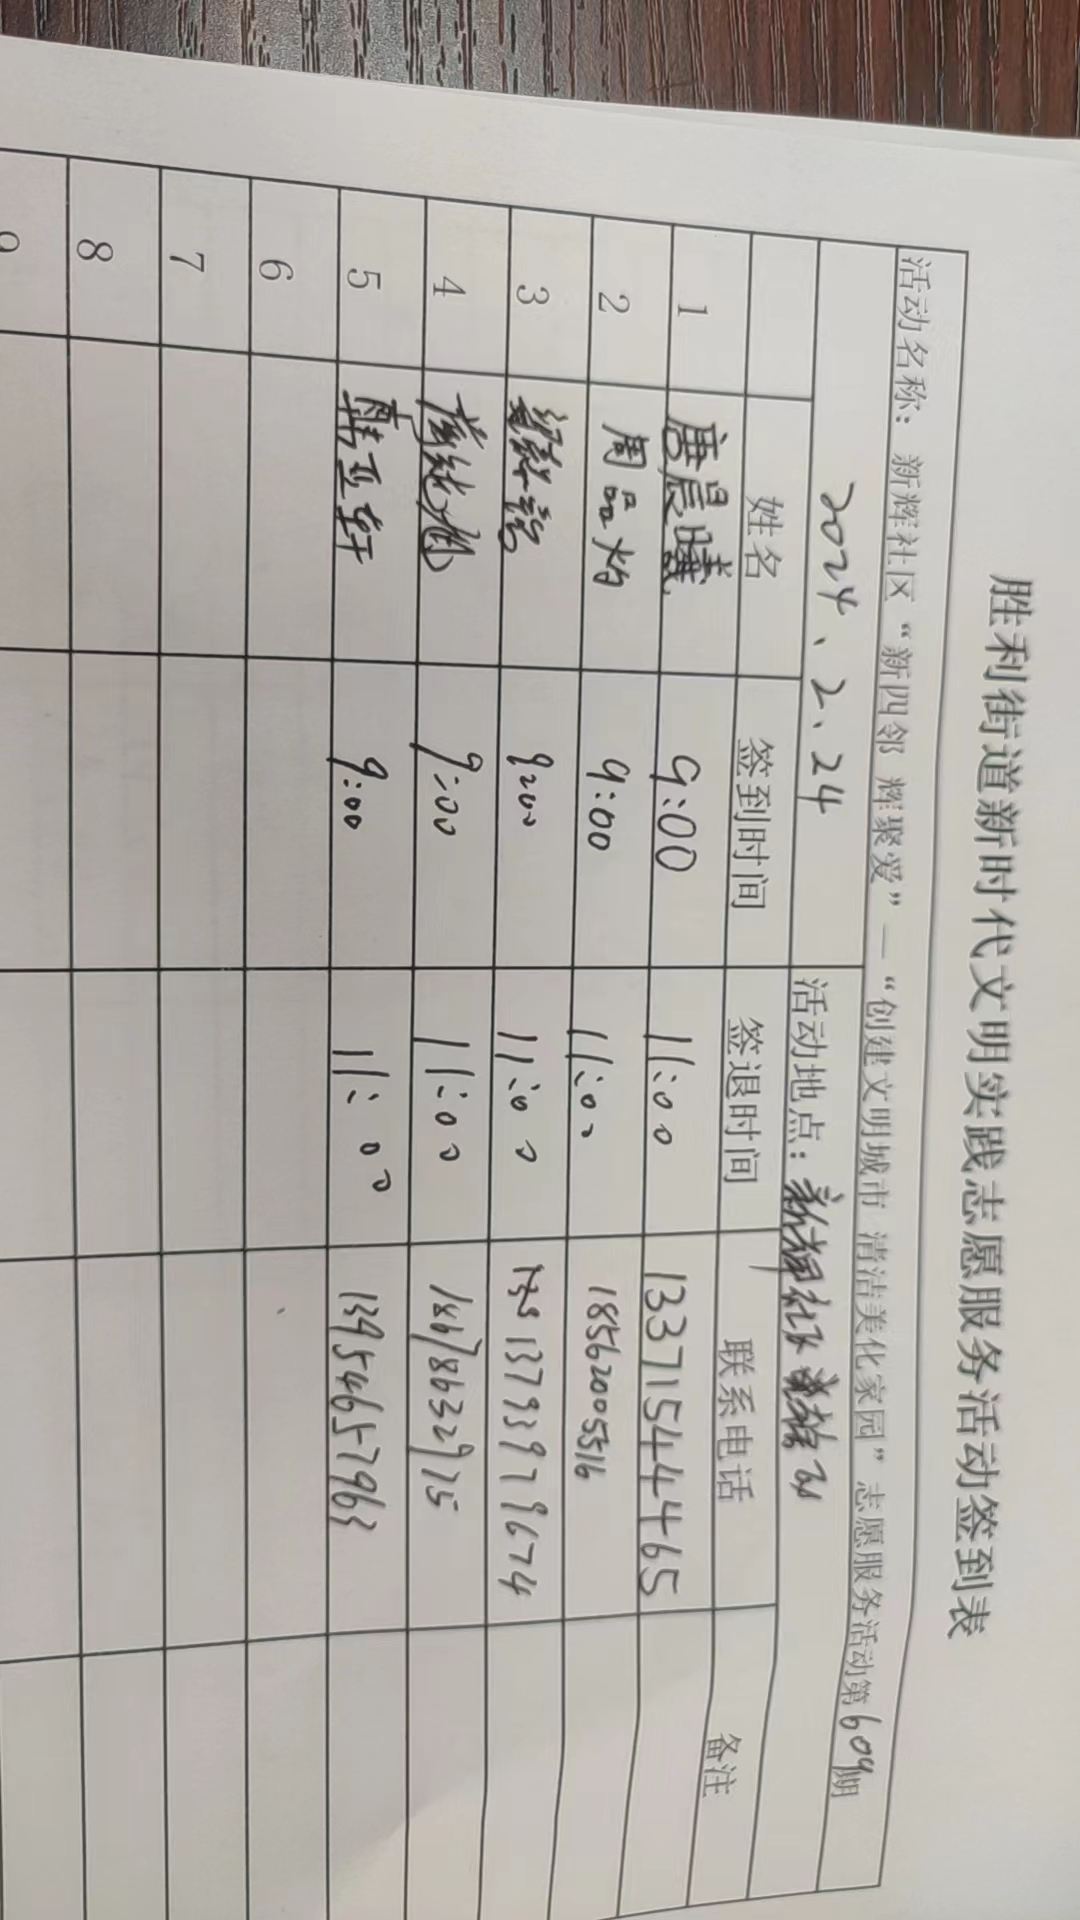 胜利街道新时代文明实践志愿服务活动签到表
活动名称：新辉社区“新四邻 辉聚爱”—“创建文明城市 清洁美化家园”志愿服务活动第609期
2024、2、24 活动地点：新辉社区
姓名 签到时间 签退时间 联系电话 备注
1 唐晨曦 9:00 11:00 13371544465
2 周品灼 9:00 11:00 18562005516
3 9:00 11:00 13793979674
4 9:00 11:00 18678632975
5 韩亚轩 9:00 11:00 13954657963
6
7
8
9